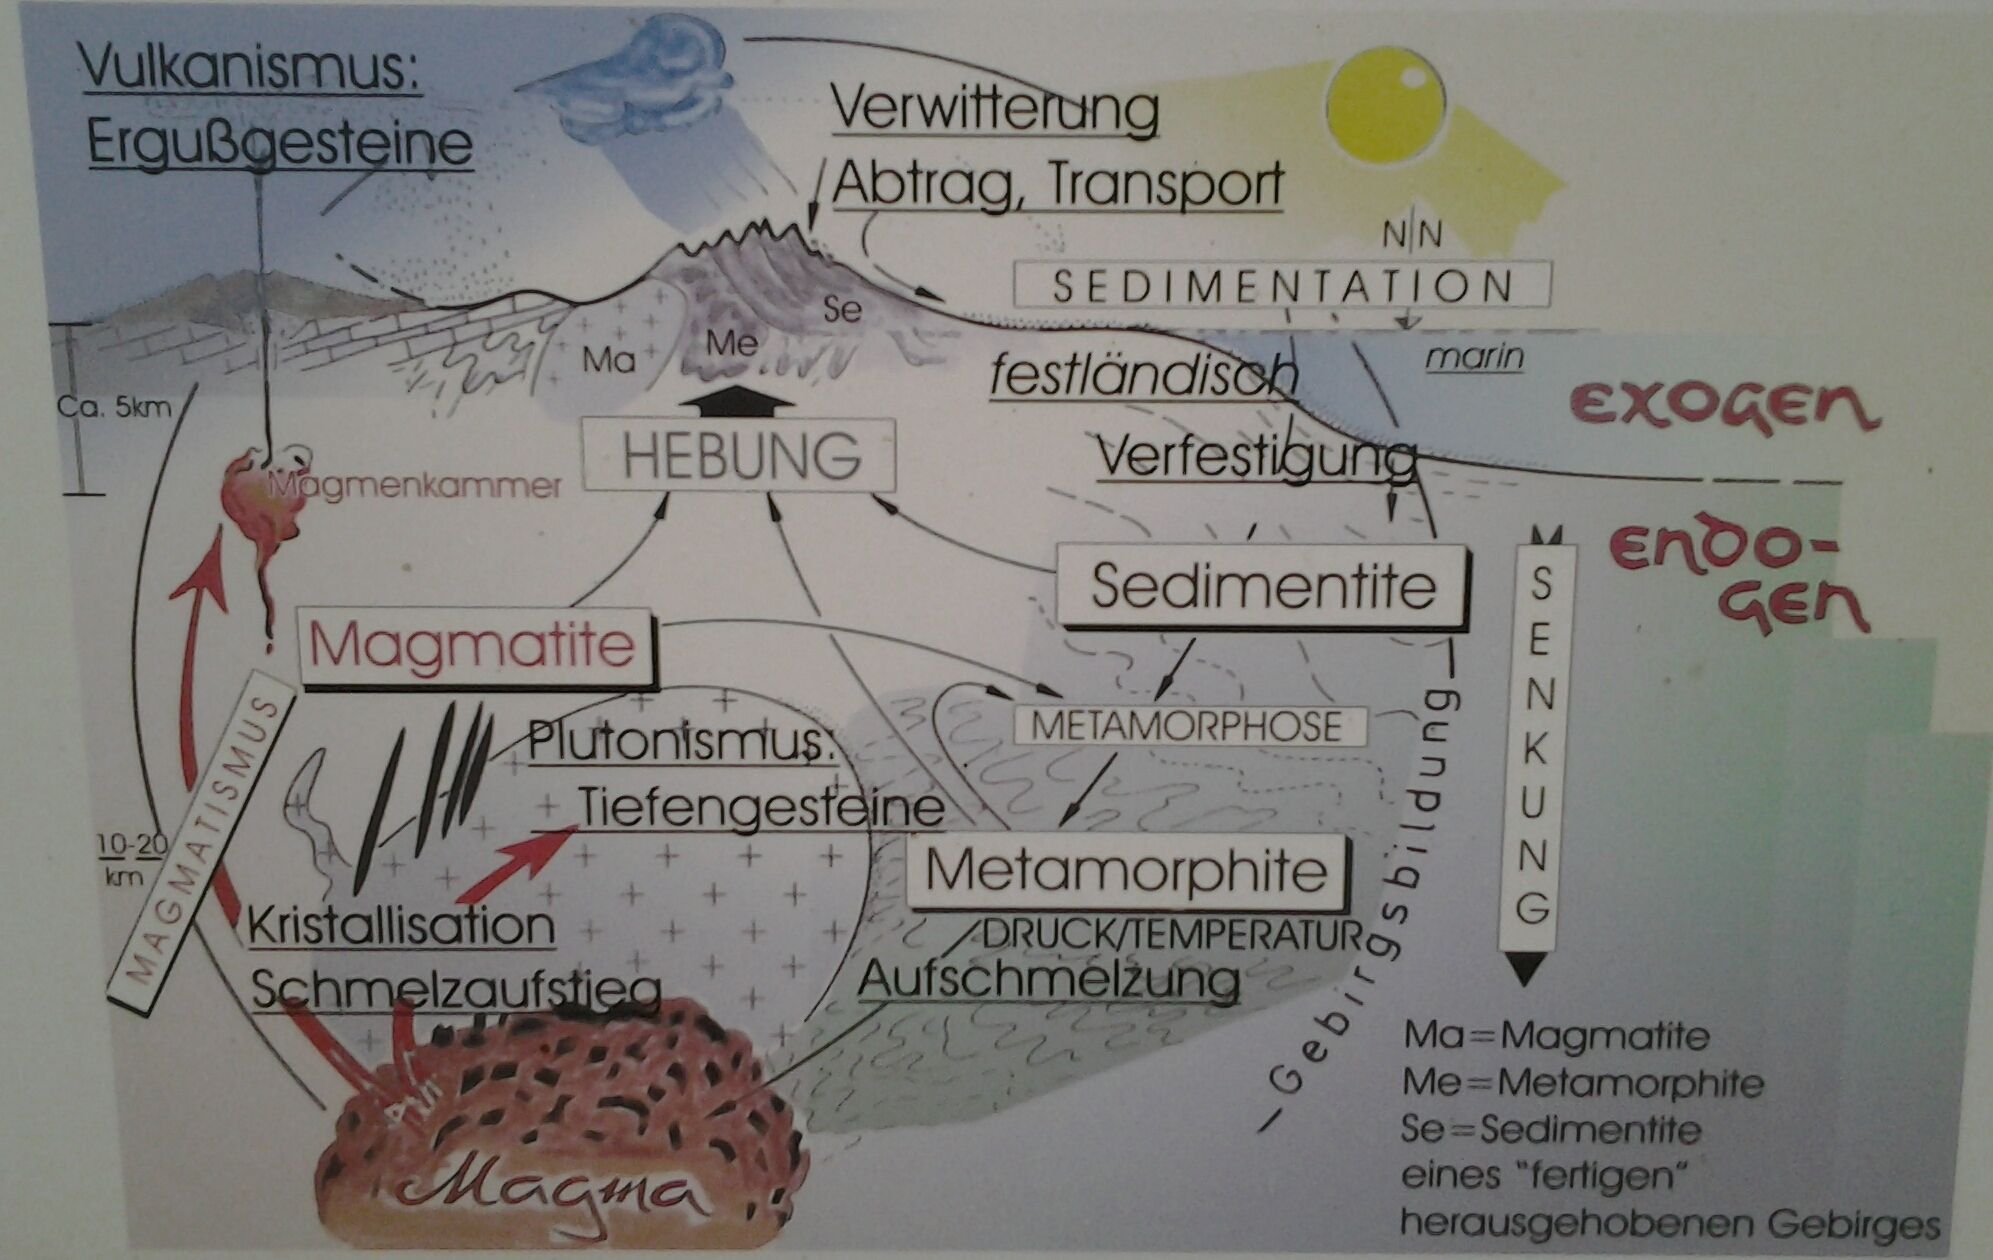 Vulkanismus:
Ergußgesteine
Verwitterung
Abtrag, Transport
NN
SEDIMENTATION
Se
Me
Ma
marin
festländisch
EXOGEN
Ca. 5km
HEBUNG
Verfestigung
Magmenkammer
ENDO-
GEN
Sedimentite
SENKUNG
Magmatite
MAGMATISMUS
METAMORPHOSE
Plutonismus:
Tiefengesteine
10-20
km
Metamorphite
Kristallisation
DRUCK/TEMPERATUR
Schmelzaufstieg
Aufschmelzung
-Gebirgsbildung-
Magma
Ma=Magmatite
Me=Metamorphite
Se=Sedimentite
eines "fertigen"
herausgehobenen Gebirges